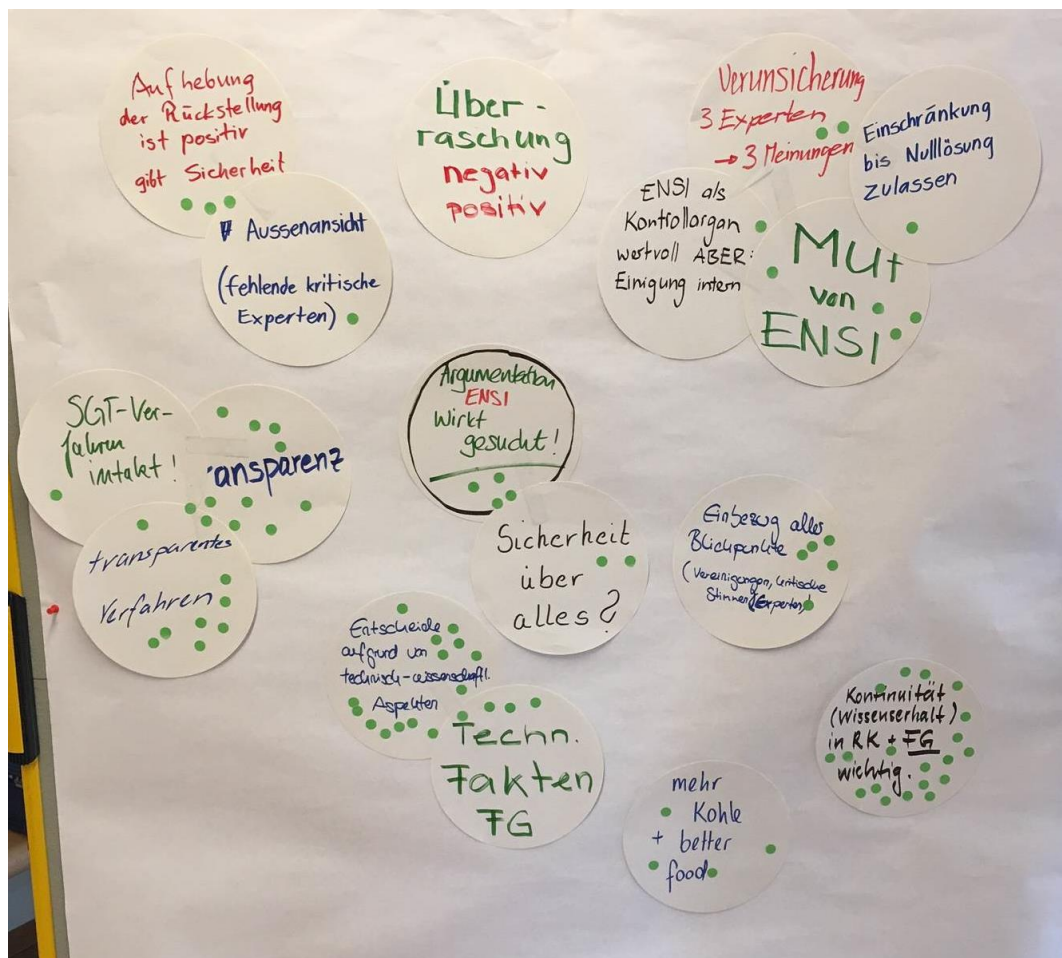 Aufhebung
der Rückstellung
ist positiv
gibt Sicherheit
Aussenansicht
(fehlende kritische
Experten)
Über-
raschung
negativ
positiv
Verunsicherung
3 Experten
→ 3 Meinungen
Einschränkung
bis Nulllösung
zulassen
ENSI als
Kontrollorgan
wertvoll ABER:
Einigung intern
Mut
von
ENSI
SGT-Ver-
fahren
intakt!
ansparenz
transparentes
Verfahren
Argumentation
ENSI
Wirkt
gesucht!
Sicherheit
über
alles?
Einbezug alles
Blickpunkte
(Vereinigungen, kritische
Stimmen, Experten)
Entscheide
aufgrund von
technisch-wissenschaftl.
Aspekten
Techn.
Fakten
FG
mehr
Kohle
+ better
food
Kontinuität
(Wissenserhalt)
in RK + FG
wichtig.